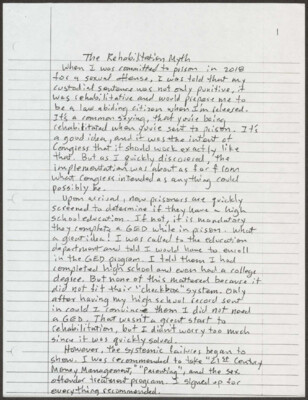 1
The Rehabilitation Myth
When I was committed to prison in 2018
for a sexual offense, I was told that my
custodial sentence was not only punitive, it
was rehabilitative and would prepare me to
be a law abiding citizen when I'm released.
It's a common saying, that you're being
rehabilitated when you're sent to prison. It's
a good idea, and it was the intent of
Congress that it should work exactly like
that. But as I quickly discovered, the
implementation was about as far from
what Congress intended as anything could
possibly be.
Upon arrival, new prisoners are quickly
screened to determine if they have a high
school education. If not, it is mandatory
they complete a GED while in prison. What
a great idea! I was called to the education
department and told I would have to enroll
in the GED program. I told them I had
completed high school and even had a college
degree. But none of this mattered because it
did not fit their "checkbox" system. Only
after having my high school record sent
in could I convince them I did not need
a GED. That wasn't a great start to
rehabilitation, but I didn't worry too much
since it was quickly solved.
However, the systemic failures began to
show. I was recommended to take "21st Century
Money Management," "Parenting", and the sex
offender treatment program. I signed up for
everything recommended.